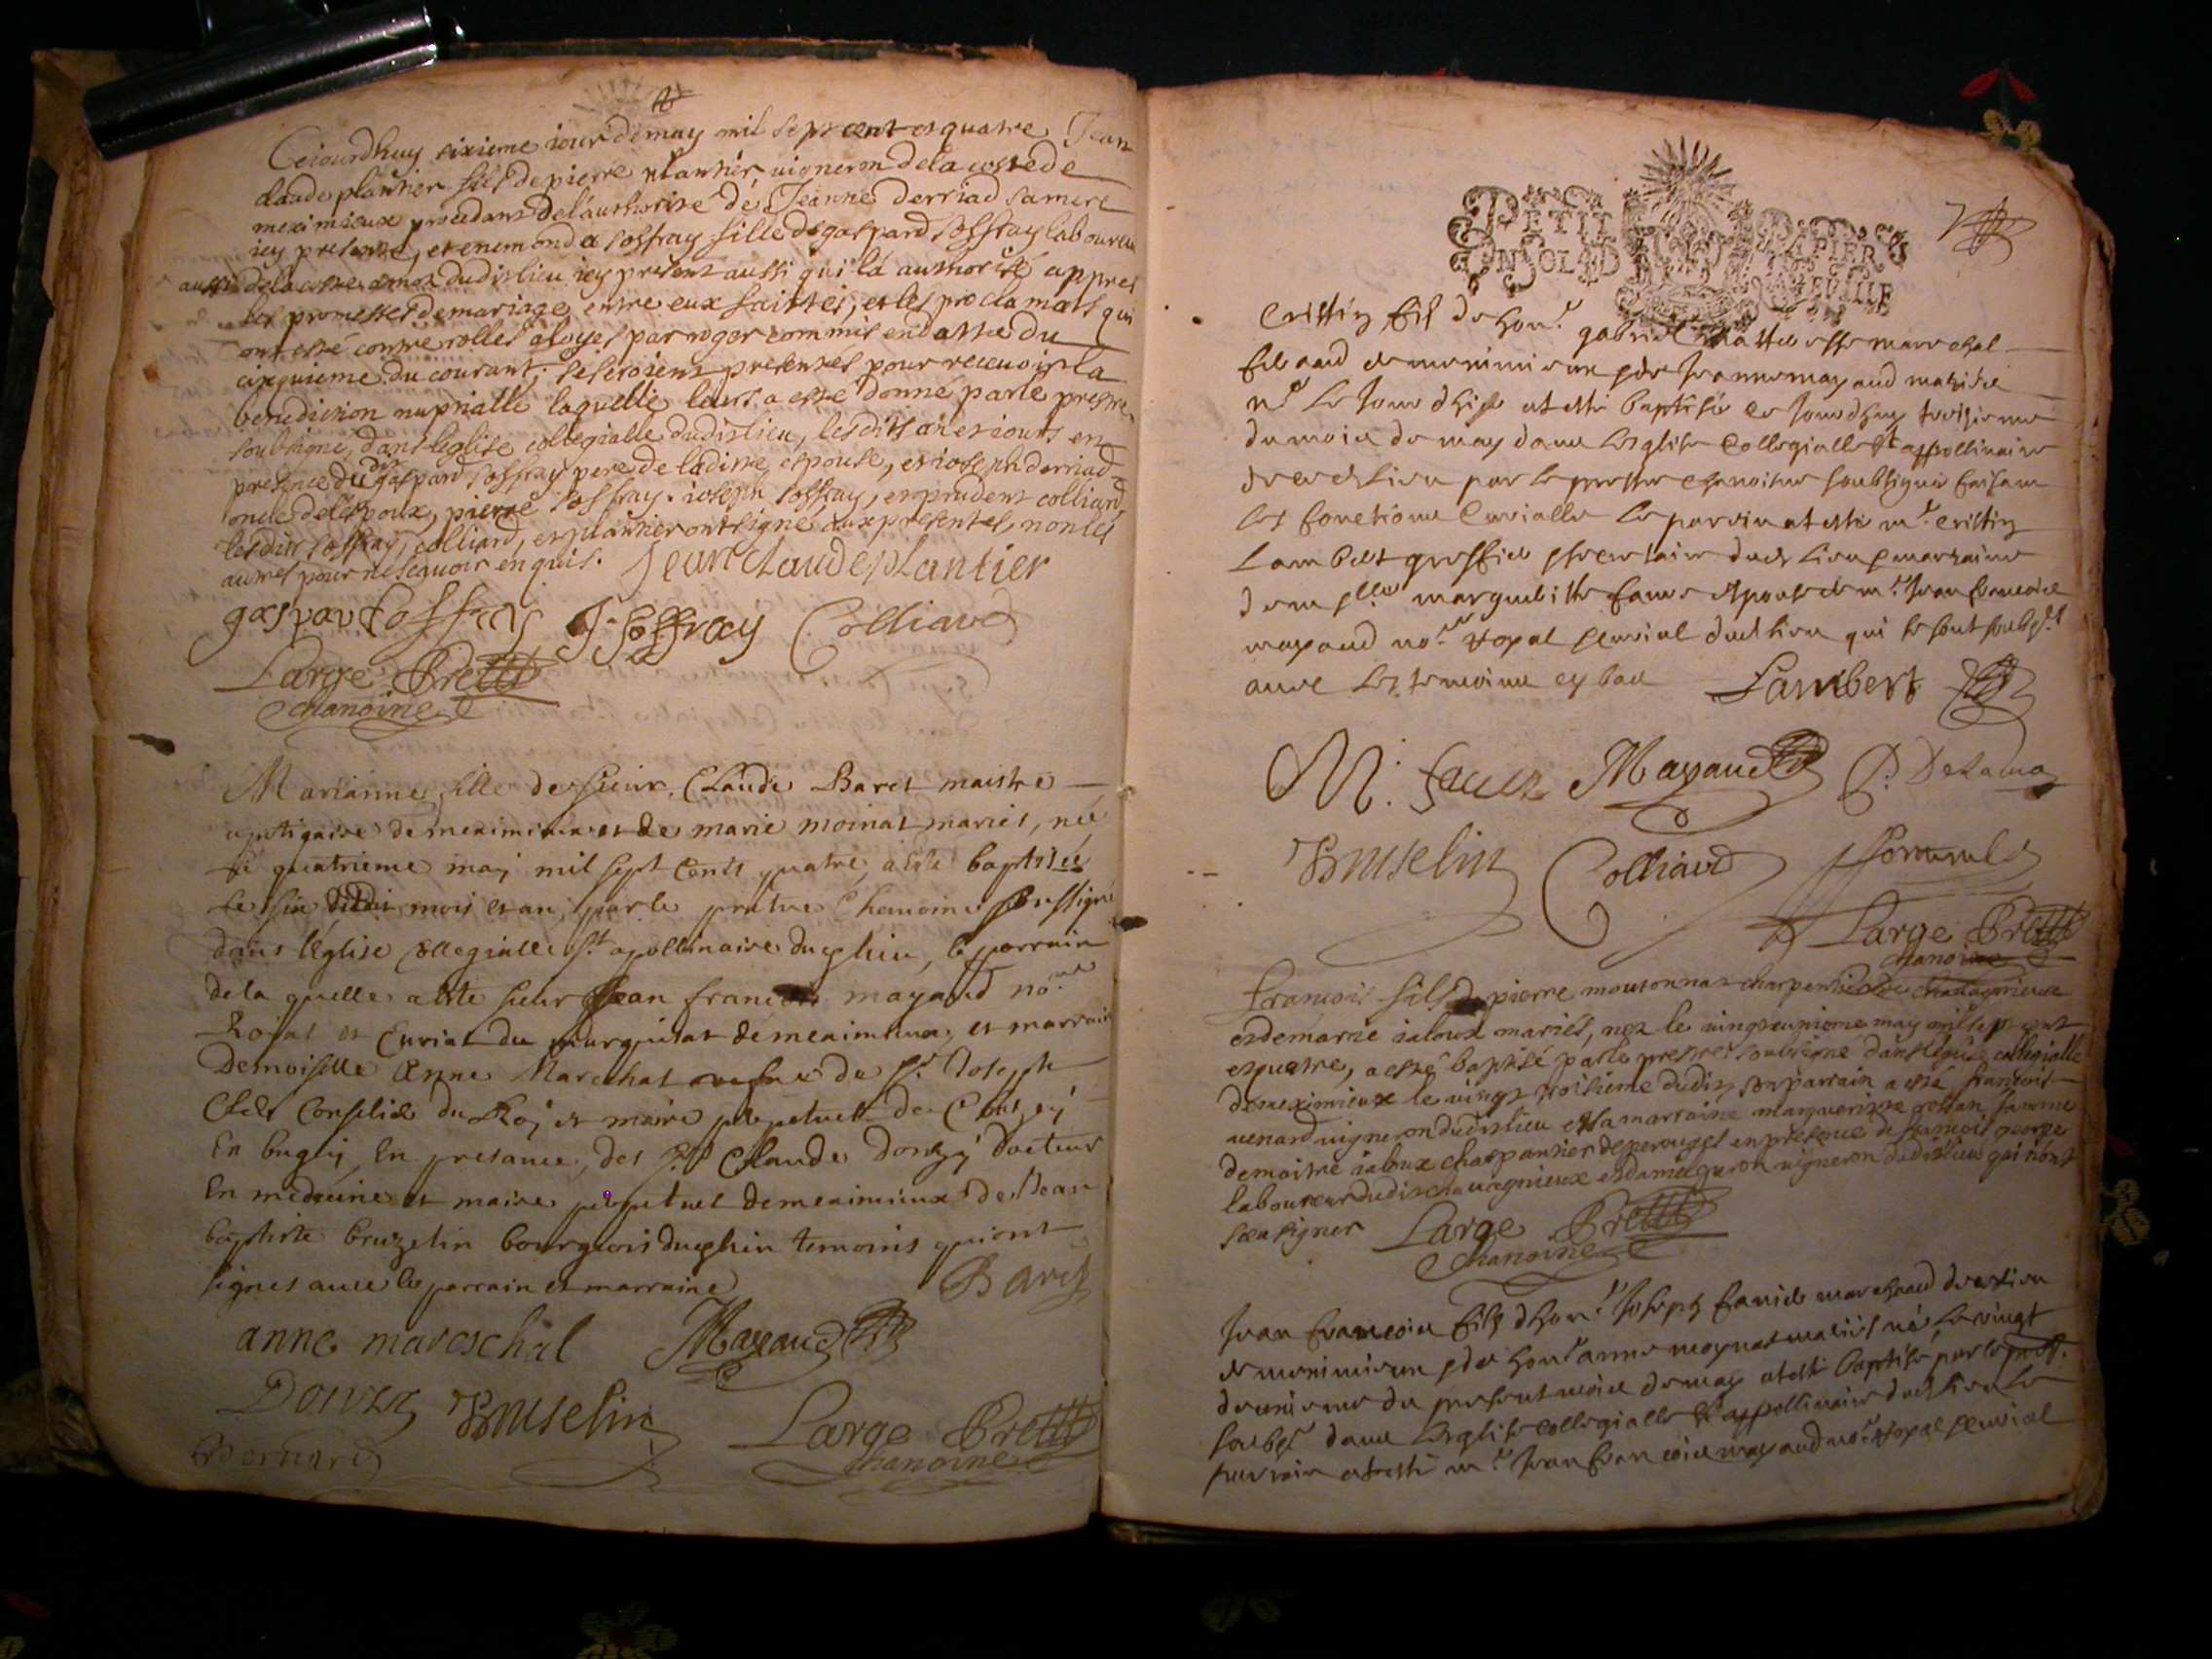 Ceiourdhuy sixieme iour de may mil sept cent et quatre Jean
claude plantier fils de pierre plantier vigneron de la coste de
meximieux procedant de l'authorité de Jeanne derriad sa mere
icy presente, et enemonda soffray fille de gaspard soffray laboureur
aussi de la coste dudit lieu icy present aussi qui la authorisé appres
les promesses de mariage entre eux faittes, et les proclamats qui
ont esté controllés par roger commis en datte du
cinquieme du courant, se seroient presentes pour recevoir la
benediction nuptialle laquelle leur a esté donné par le prestre
soubsigné, dans l'eglise collegialle dudit lieu, lesdits an et iours en
presence dudit gaspard soffray pere de laditte espouse, et ioseph derriad
oncle de l'espoux, pierre soffray, ioseph soffray, et prudent colliard
lesdits soffray, colliard, et plantier ont signé aux presentes, non les
autres pour ne sçavoir enquis. Jean claude plantier
gaspard soffray J Soffray Colliard
Large Prettre
chanoine
Marianne fille de sieur Claude Baret maistre
apotiqaire de meximieux et de marie moinat mariés, née
le quatrieme may mil sept cents quatre, a esté baptisée
le six dudit mois et an, par le prêtre Chanoine soussigné
dans l'église collegialle St apollinaire du lieu, le parrain
de la quelle a esté sieur Jean francois mayaud no.re
Roial et Curial du marquisat de meximieux, et marraine
Demoiselle Anne Marechal de Sr Joseph
Conseiller du Roy et maire perpetuel de
En bugey, En presance, des Srs Claude Donzy docteur
En medecine et maire perpetuel de meximieux et de Jean
baptiste bruzelin bourgeois du lieu temoins qui ont
signes avec le parrain et marraine
Baret
anne mareschal Mayaud
Donzy Bruselin Large Prettre
Bernard chanoine
PETIT PAPIER
Cristin fils de hon.r gabriel marechal
de meximieux et de Jeanne mayaud mariés
né le Jour d'hier at esté baptisé ce Jourd'huy troisieme
du mois de may dans l'esglise Collegialle St appollinaire
par le prestre chanoine soubsigné faisant
les fonctions Curialles le parrin at esté m.r Cristin
Lambert greffier secretaire dudt lieu marraine
dem.lle margueritte faure espouse de m.r Jean francois
mayaud no.re royal Curial dudt lieu qui se sont soubs.és
avec les temoins cy bas Lambert
M. faure Mayaud P. Delama
Bruselin Colliard
Large Prettre
chanoine
francois fils de pierre moutonnat charpentier de chavagnieux
et de marie ialoux mariés, nez le vingt unieme may mil sept cent
et quatre, a esté baptisé par le prestre soubsigné dans l'eglise collegialle
de meximieux le vingt troisieme dudit, son parrain a esté francois
venard vigneron dudit lieu et sa marraine margueritte famme
de maistre ialoux charpantier de perouges en presence de francois george
laboureur dudit chavagnieux et vigneron dudit lieu qui n'ont
sceu signer Large Prettre
chanoine
Jean francois fils d'hon.r Joseph marchand
de meximieux et de hon.te anne moynat mariés né le vingt
deuxieme du present mois de may at esté baptisé par le prest.
soubs.é dans l'esglise collegialle St appollinaire dudt lieu le
parrain at esté m.r Jean francois mayaud no.re royal Curial